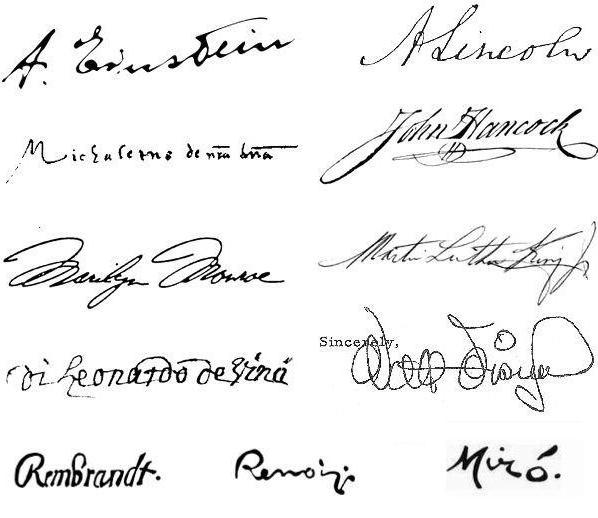 A. Einstein
A Lincoln
Michelagniolo
John Hancock
Marilyn Monroe
Martin Luther King Jr
Sincerely,
Walt Disney
di Leonardo de Vinci
Rembrandt.
Renoir.
Miró.